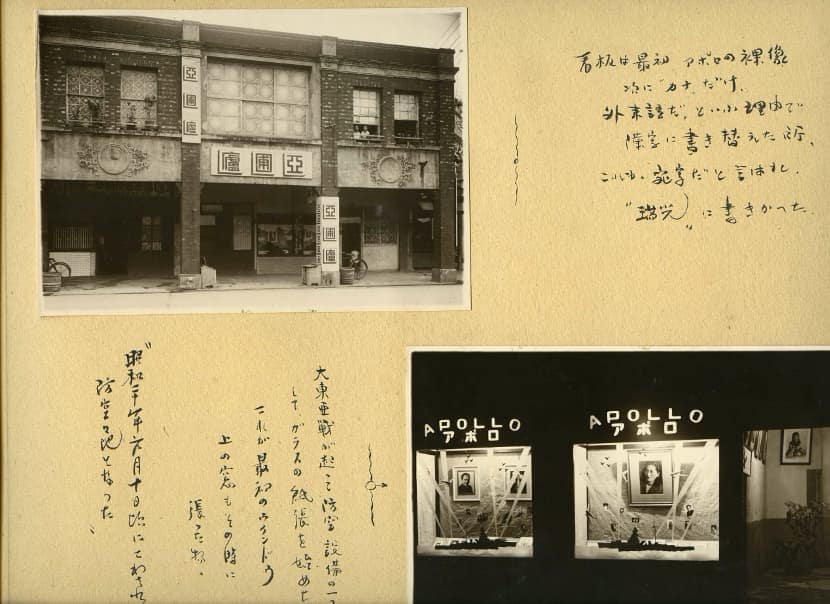 亞圃廬
亞圃廬
亞圃廬
看板は最初 アポロの裸像
次に“カナ”だけ、
外来語だ、といふ理由で
漢字に書き替えた所、
これも、宛字だと言はれ、
に書きかつた
大東亜戦が起って防空設備の一つ
して、ガラスの紙張を始めた
これが最初のウインドウ
上の窓もその時に
張った物。
昭和二十年六月十日頃にこわされ
防空々地となった
APOLLO
アポロ
APOLLO
アポロ